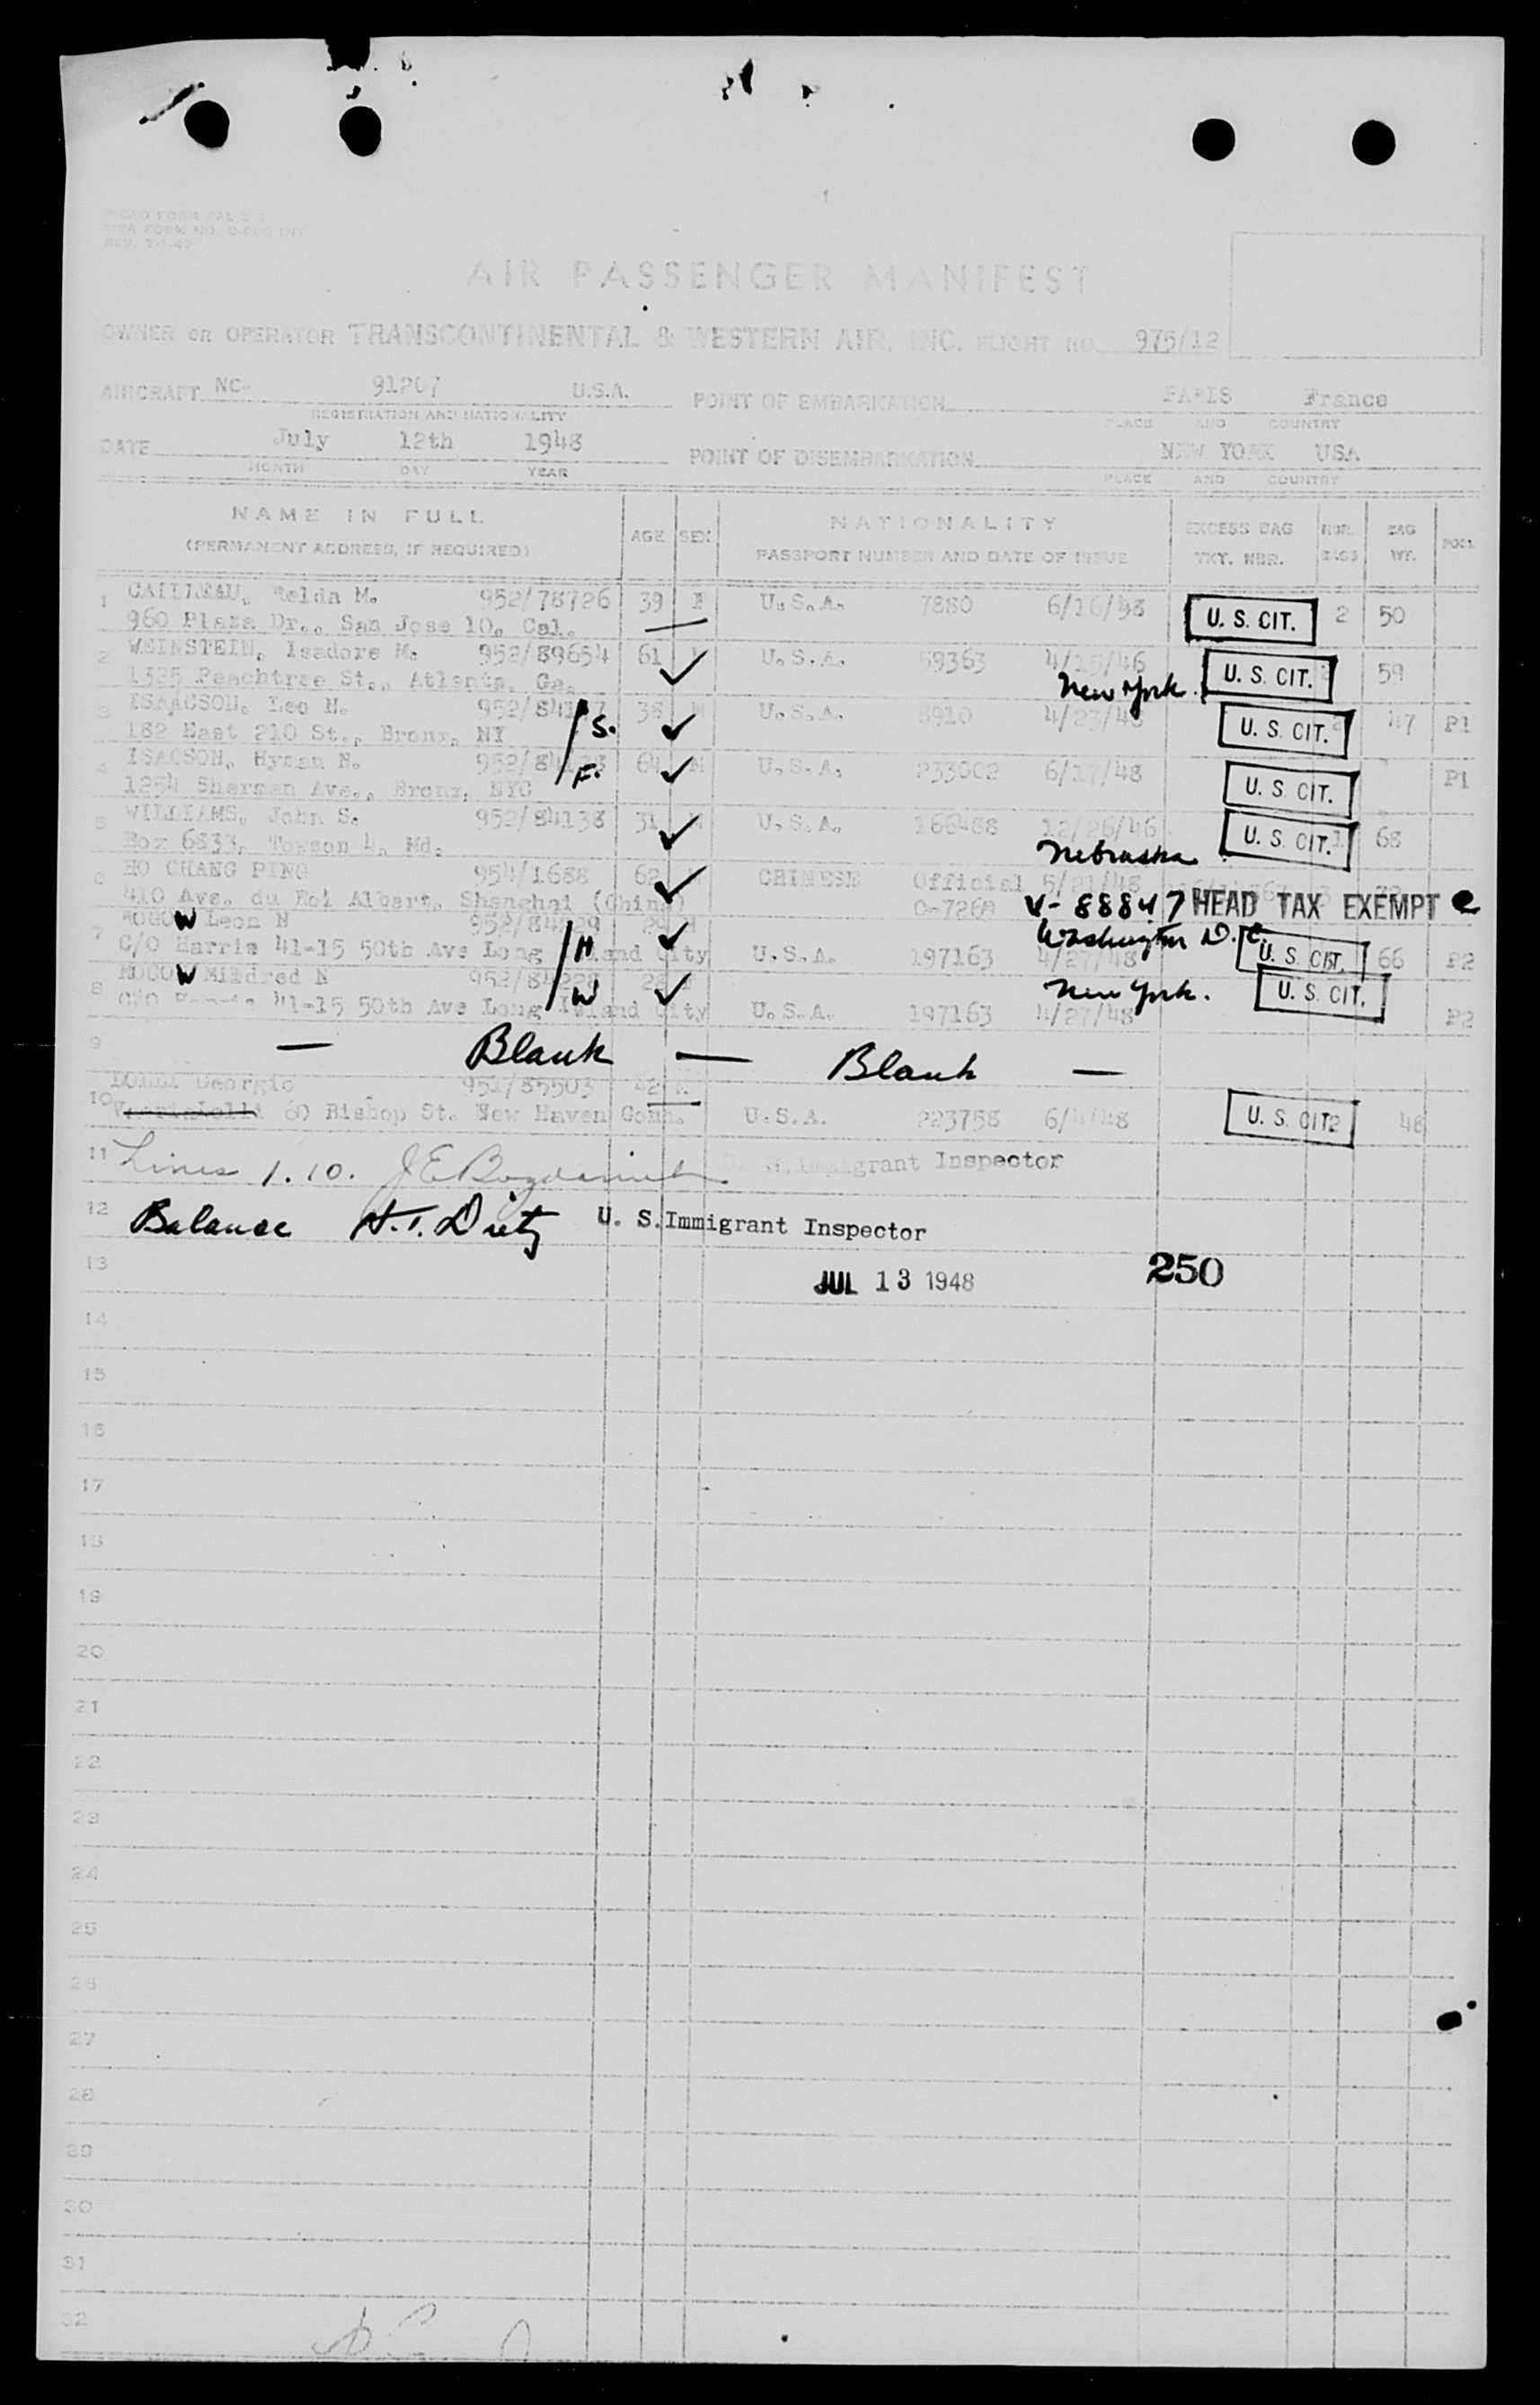 REV. 7-1-47
AIR PASSENGER MANIFEST
OWNER OR OPERATOR TRANSCONTINENTAL & WESTERN AIR, INC. FLIGHT NO. 975/12
AIRCRAFT NC- 91207 U.S.A. POINT OF EMBARKATION PARIS France
REGISTRATION AND NATIONALITY PLACE AND COUNTRY
DATE July 12th 1948 POINT OF DISEMBARKATION NEW YORK USA
MONTH DAY YEAR PLACE AND COUNTRY
NAME IN FULL AGE SEX NATIONALITY EXCESS BAG NBR. BAG
(PERMANENT ADDRESS, IF REQUIRED) PASSPORT NUMBER AND DATE OF ISSUE TKT. NBR. BAGS WT.
1 CAILLEAU, Relda M. 952/78726 39 F U.S.A. 7880 6/16/48 U. S. CIT. 2 50
960 Plaza Dr., San Jose 10, Cal.
2 WEINSTEIN, Isadore M. 952/89654 61 ✓ U.S.A. 59363 4/15/46 U. S. CIT. 59
1325 Peachtree St., Atlanta, Ga. New York.
3 ISAACSON, Leo N. S. 38 M ✓ U.S.A. 6910 4/23/48 U. S. CIT. 47 P1
182 East 210 St., Bronx, NY
4 ISACSON, Hyman N. F. 64 M ✓ U.S.A. 233002 6/17/48 U. S. CIT. P1
1254 Sherman Ave., Bronx, NYC
5 WILLIAMS, John S. 952/84138 31 M ✓ U.S.A. 166488 12/26/46 U. S. CIT. 1 68
Box 6833, Towson 4, Md. Nebraska
6 HO CHANG PING 954/1688 62 ✓ CHINESE Official 5/21/48
410 Ave. du Roi Albert, Shanghai (China) V-88847 HEAD TAX EXEMPT
Washington D.C.
7 W Leon N H ✓
C/O Harris 41-15 50th Ave Long Island City U.S.A. 197163 4/27/48 U. S. CIT. 66 P2
8 W Mildred N W ✓ New York. U. S. CIT.
41-15 50th Ave Long Island City U.S.A. 197163 4/27/48 P2
9 — Blank — Blank —
Georgio 952/85503 42 M
10 60 Bishop St. New Haven Conn. U.S.A. 223758 U. S. CIT 2 48
11 Lines 1. 10. U. S. Immigrant Inspector
12 Balance H. T. Dietz U. S. Immigrant Inspector
13 JUL 13 1948 250
14
15
16
17
18
19
20
21
22
23
24
25
26
27
28
29
30
31
32